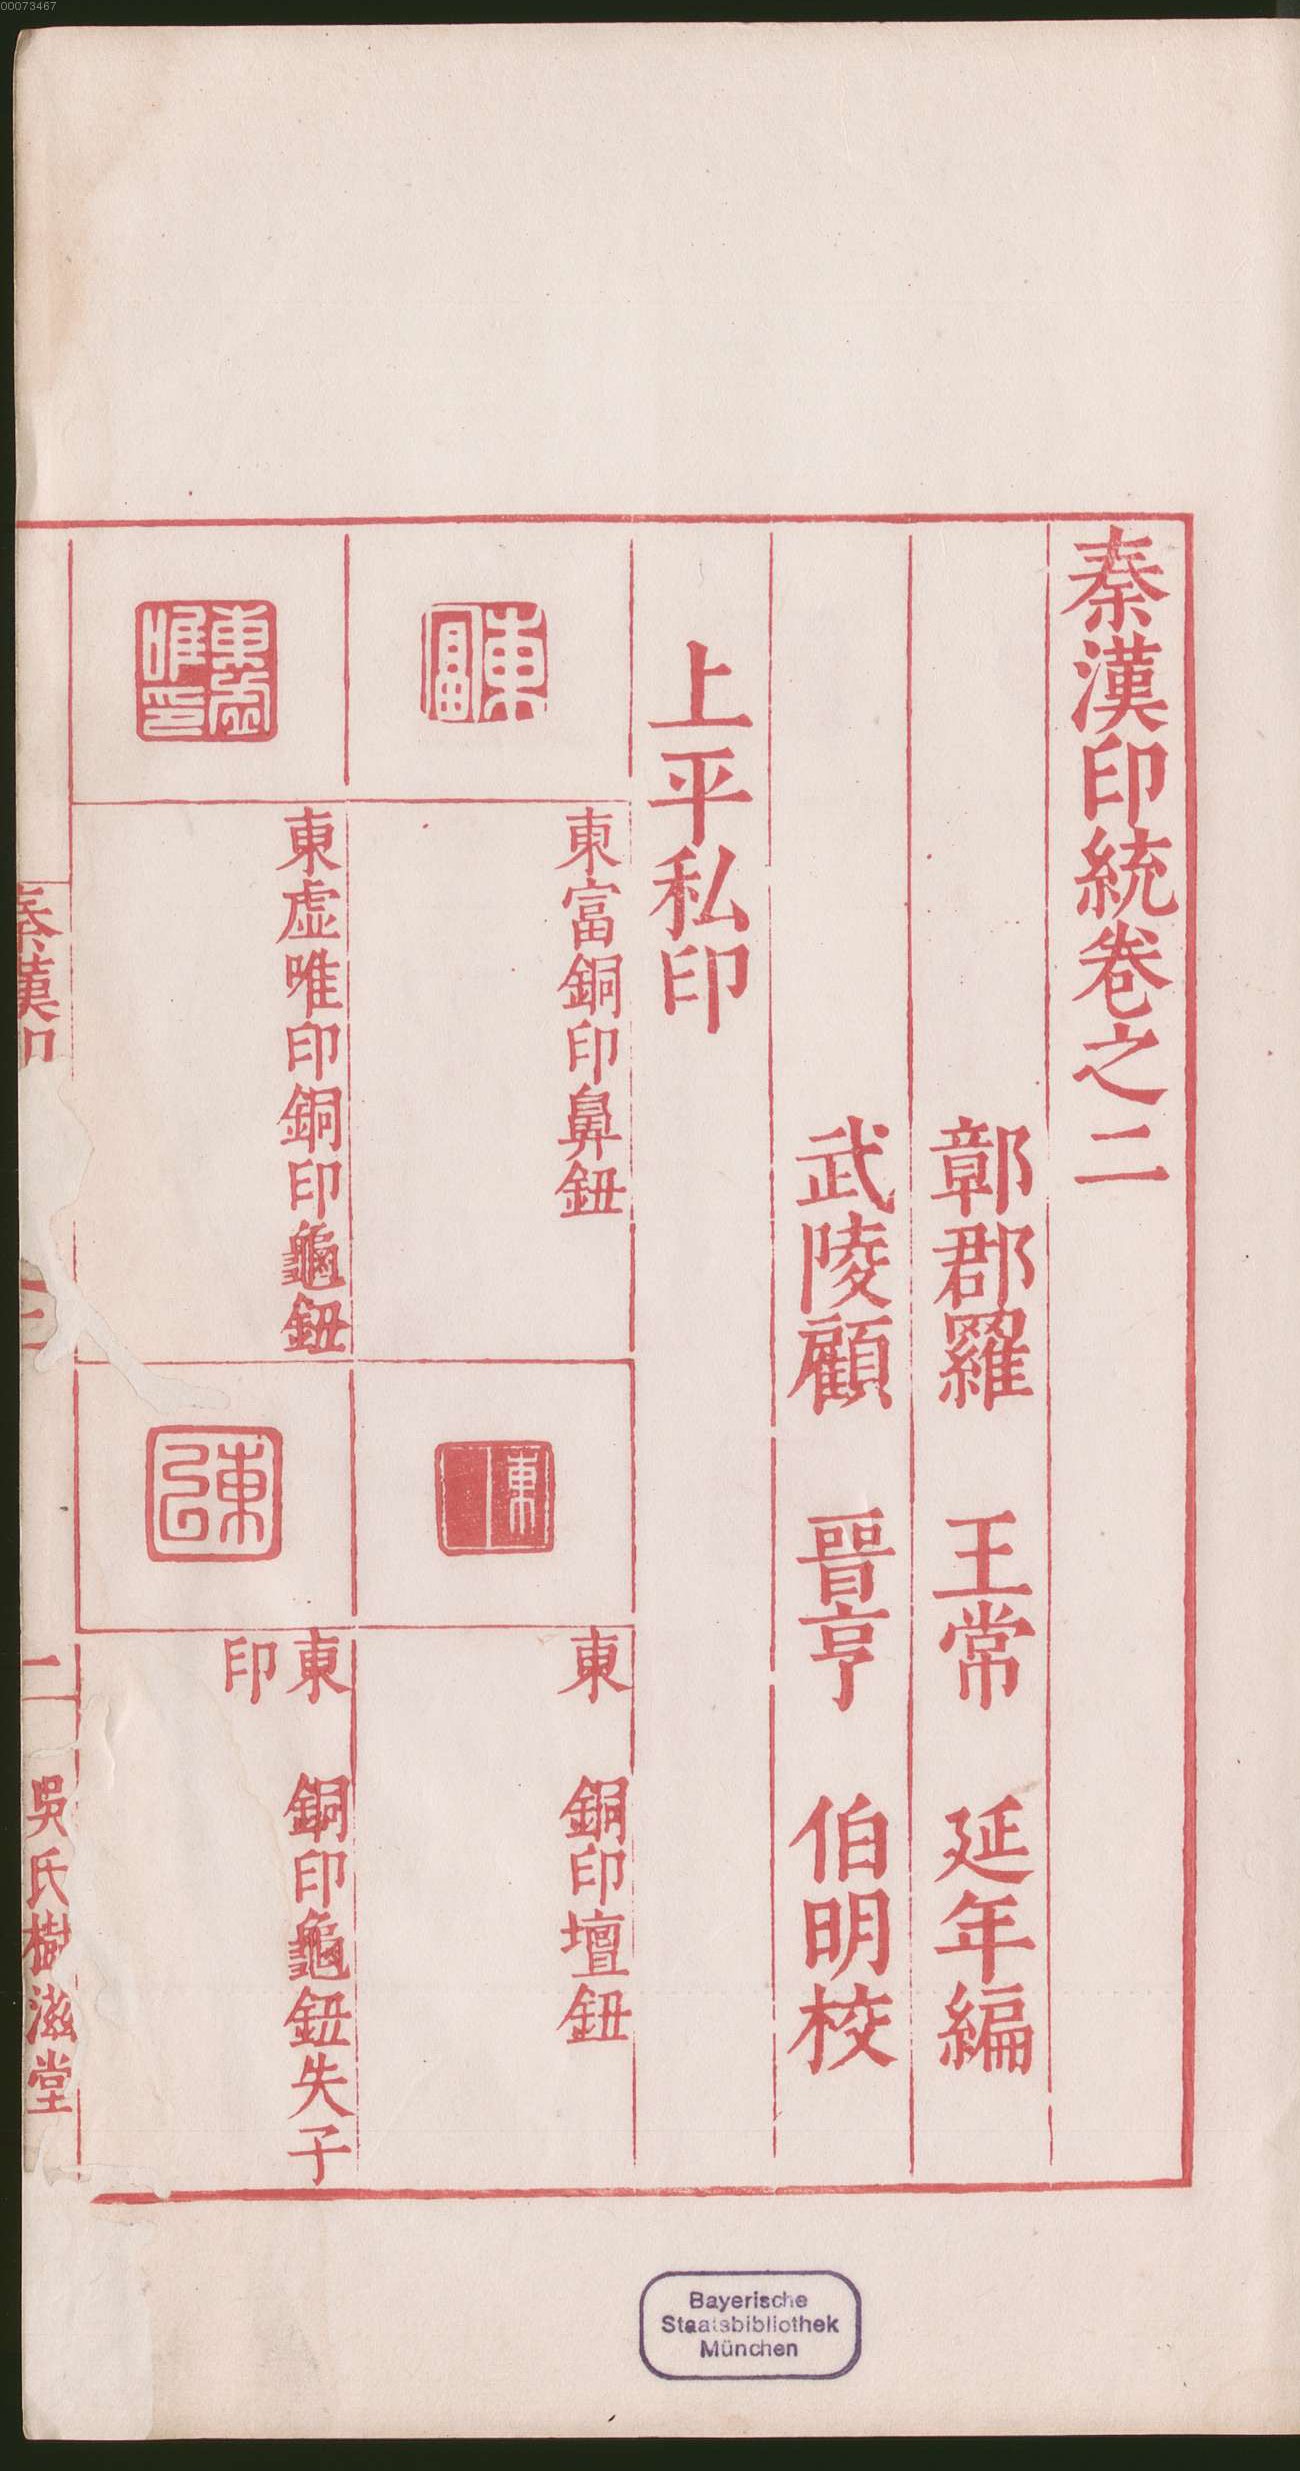 00073467
秦漢印統卷之二
鄣郡羅 王常 延年編
武陵顧 晉亨 伯明校
上平私印
東富
東富銅印鼻鈕
東
東 銅印壇鈕
東虛唯印
東虛唯印銅印龜鈕
東印
東 銅印龜鈕失子
印
秦漢印
二
吳氏樹滋堂
Bayerische
Staatsbibliothek
München